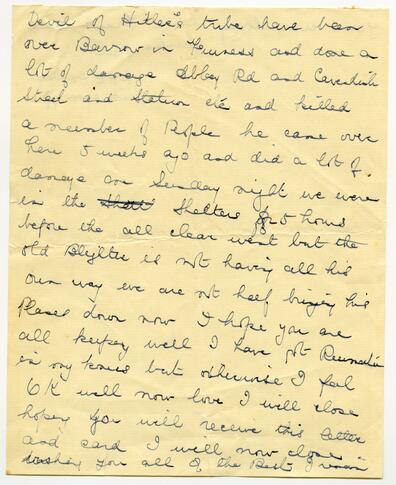 Devil of Hitler's tribe have been
over Barrow in Furness and done a
lot of damage Abbey Rd and Cavendish
Street and Station etc and killed
a number of People he came over
here 5 weeks ago and did a lot of
damage on Sunday night we were
in the Shelters for 5 hours
before the all clear went but the
old Blighter is not having all his
own way we are not half bringing his
Planes down now I hope you are
all keeping well I have got Reumatism
in my knees but otherwise I feel
OK well now love I will close
hoping you will receive this letter
and card I will now close
wishing you all of the Best I remain